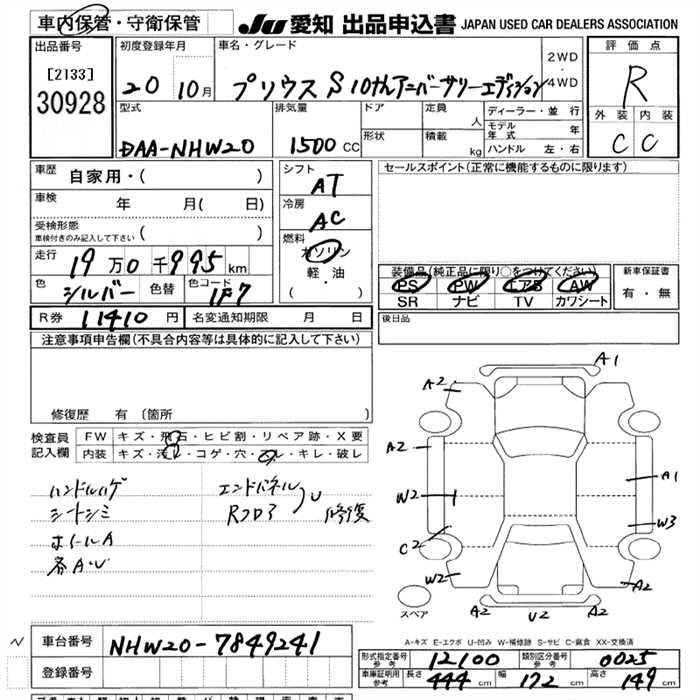 車内保管・守衛保管
JU 愛知 出品申込書 JAPAN USED CAR DEALERS ASSOCIATION
出品番号
[2133]
30928
初度登録年月
20 10月
車名・グレード
プリウス S 10thアニバーサリーエディション
2WD
4WD
評価点
R
外装 内装
C C
型式
DAA-NHW20
排気量
1500 CC
ドア
形状
定員
人
積載
kg
ディーラー・並行
モデル年式 年
ハンドル 左・右
車歴
自家用・( )
車検
年 月( 日)
受検形態
車検付きのみ記入して下さい ( )
走行
19万0千995km
色
シルバー
色替
色コード
1F7
シフト
AT
冷房
AC
燃料
ガソリン
軽・油
( )
セールスポイント(正常に機能するものに限ります)
装備品(純正品に限り○をつけてください)
PS PW エアB AW
SR ナビ TV カワシート
新車保証書
有・無
R券 11410 円
名変通知期限 月 日
後日品
注意事項申告欄(不具合内容等は具体的に記入して下さい)
修復歴 有 〔箇所 〕
検査員
記入欄
FW キズ・飛石・ヒビ割・リペア跡・X要
内装 キズ・汚れ・コゲ・穴・スレ・キレ・破レ
ハンドルハゲ
シートシミ
ホイールA
各A・U
エンドパネル
RフロアU 修復
A1
A2
A2
A1
W2
W3
C2
W2
A2
A2
U2
A2
スペア
A-キズ E-エクボ U-凹み W-補修跡 S-サビ C-腐食 XX-交換済
車台番号
NHW20-7849241
登録番号
形式指定番号 参考 12100
類別区分番号 参考 0025
車庫証明用 参考
長さ 444 cm
幅 172 cm
高さ 149 cm